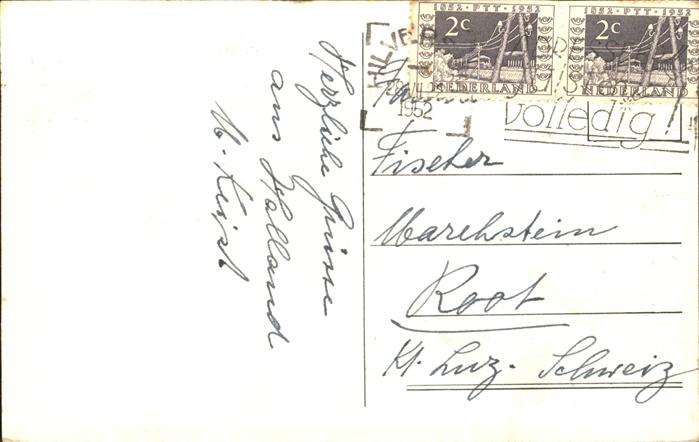 Herzliche Grüsse
aus Holland
1852 · PTT · 1952
2c
NEDERLAND
1852 · PTT · 1952
2c
NEDERLAND
1952
volledig!
Fischer
Marchstein
Root
Kt. Luz. Schweiz